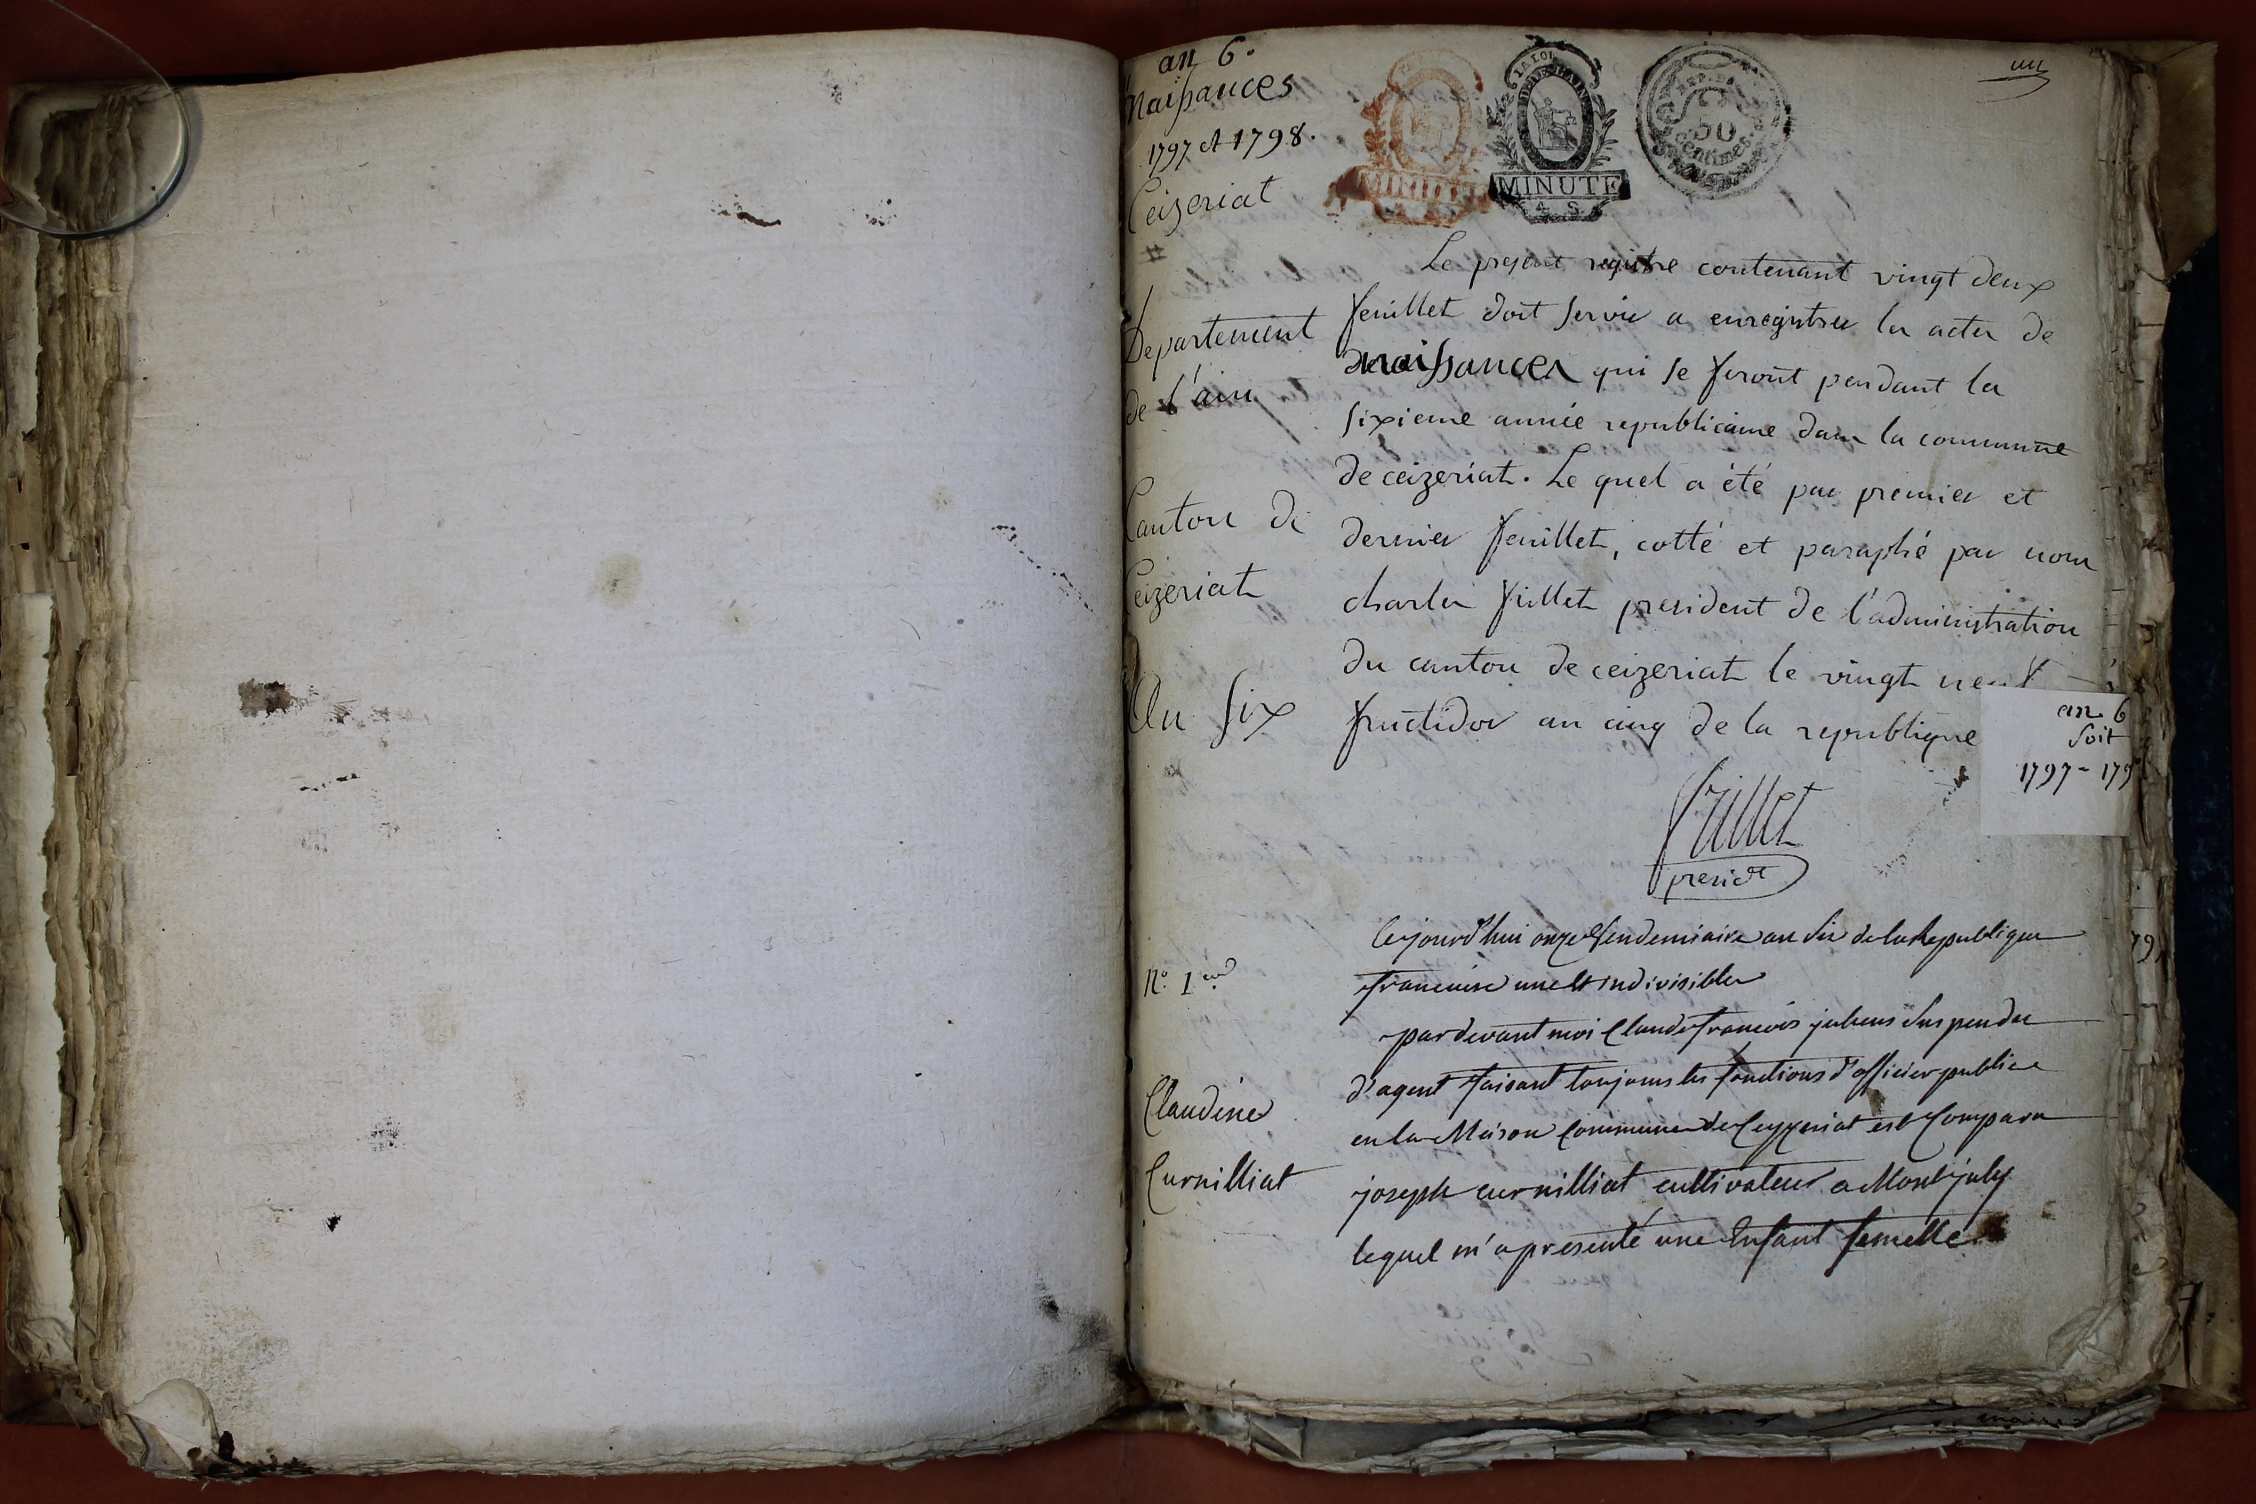 an 6.
Naissances
1797 et 1798.
Ceizeriat
#
un
LA LOI
MINUTE
4 S
MINUTE
50
Centimes
Departement
de l'ain
Canton de
Ceizeriat
An six
Le present registre contenant vingt deux
feuillet doit servir a enregistrer les actes de
de naissances qui se feront pendant la
sixieme année republicaine dans la commune
de ceizeriat. Le quel a été par premier et
dernier feuillet, cotté et paraphé par nous
charles fillet president de l'administration
du canton de ceizeriat le vingt neuf
fructidor an cinq de la republique
an 6
soit
1797 - 179
fillet
presidt
N.o 1er
Claudine
Curnilliat
Cejourd'hui onze Vendemiaire an Six de la Republique
francaise une et indivisible
pardevant moi Claude françois juhens Suspendu
d'agent faisant toujours les fonctions d'officier publice
en la Maison Commune de Ceyzeriat est Comparu
joseph curnilliat cultivateur a Montjuly
lequel m'a presenté une Enfant femelle